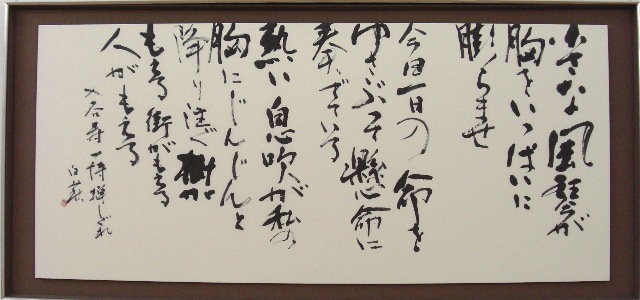 小さな風琴が
胸をいっぱいに
膨らませ
今日一日の命を
ゆさぶって懸命に
奏でている
熱い息吹が私の
胸にじんじんと
降り注ぐ樹が
もえる街がもえる
人がもえる
谷寿一詩 蝉しぐれ